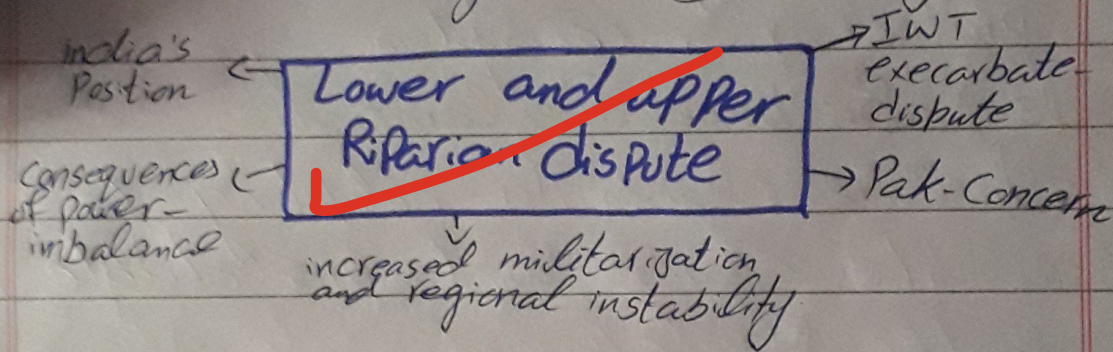 India's
Position
Lower and upper
Riparian dispute
IWT
execarbate-
dispute
Consequences
of power-
imbalance
Pak-Concern
increased militarization
and regional instability.